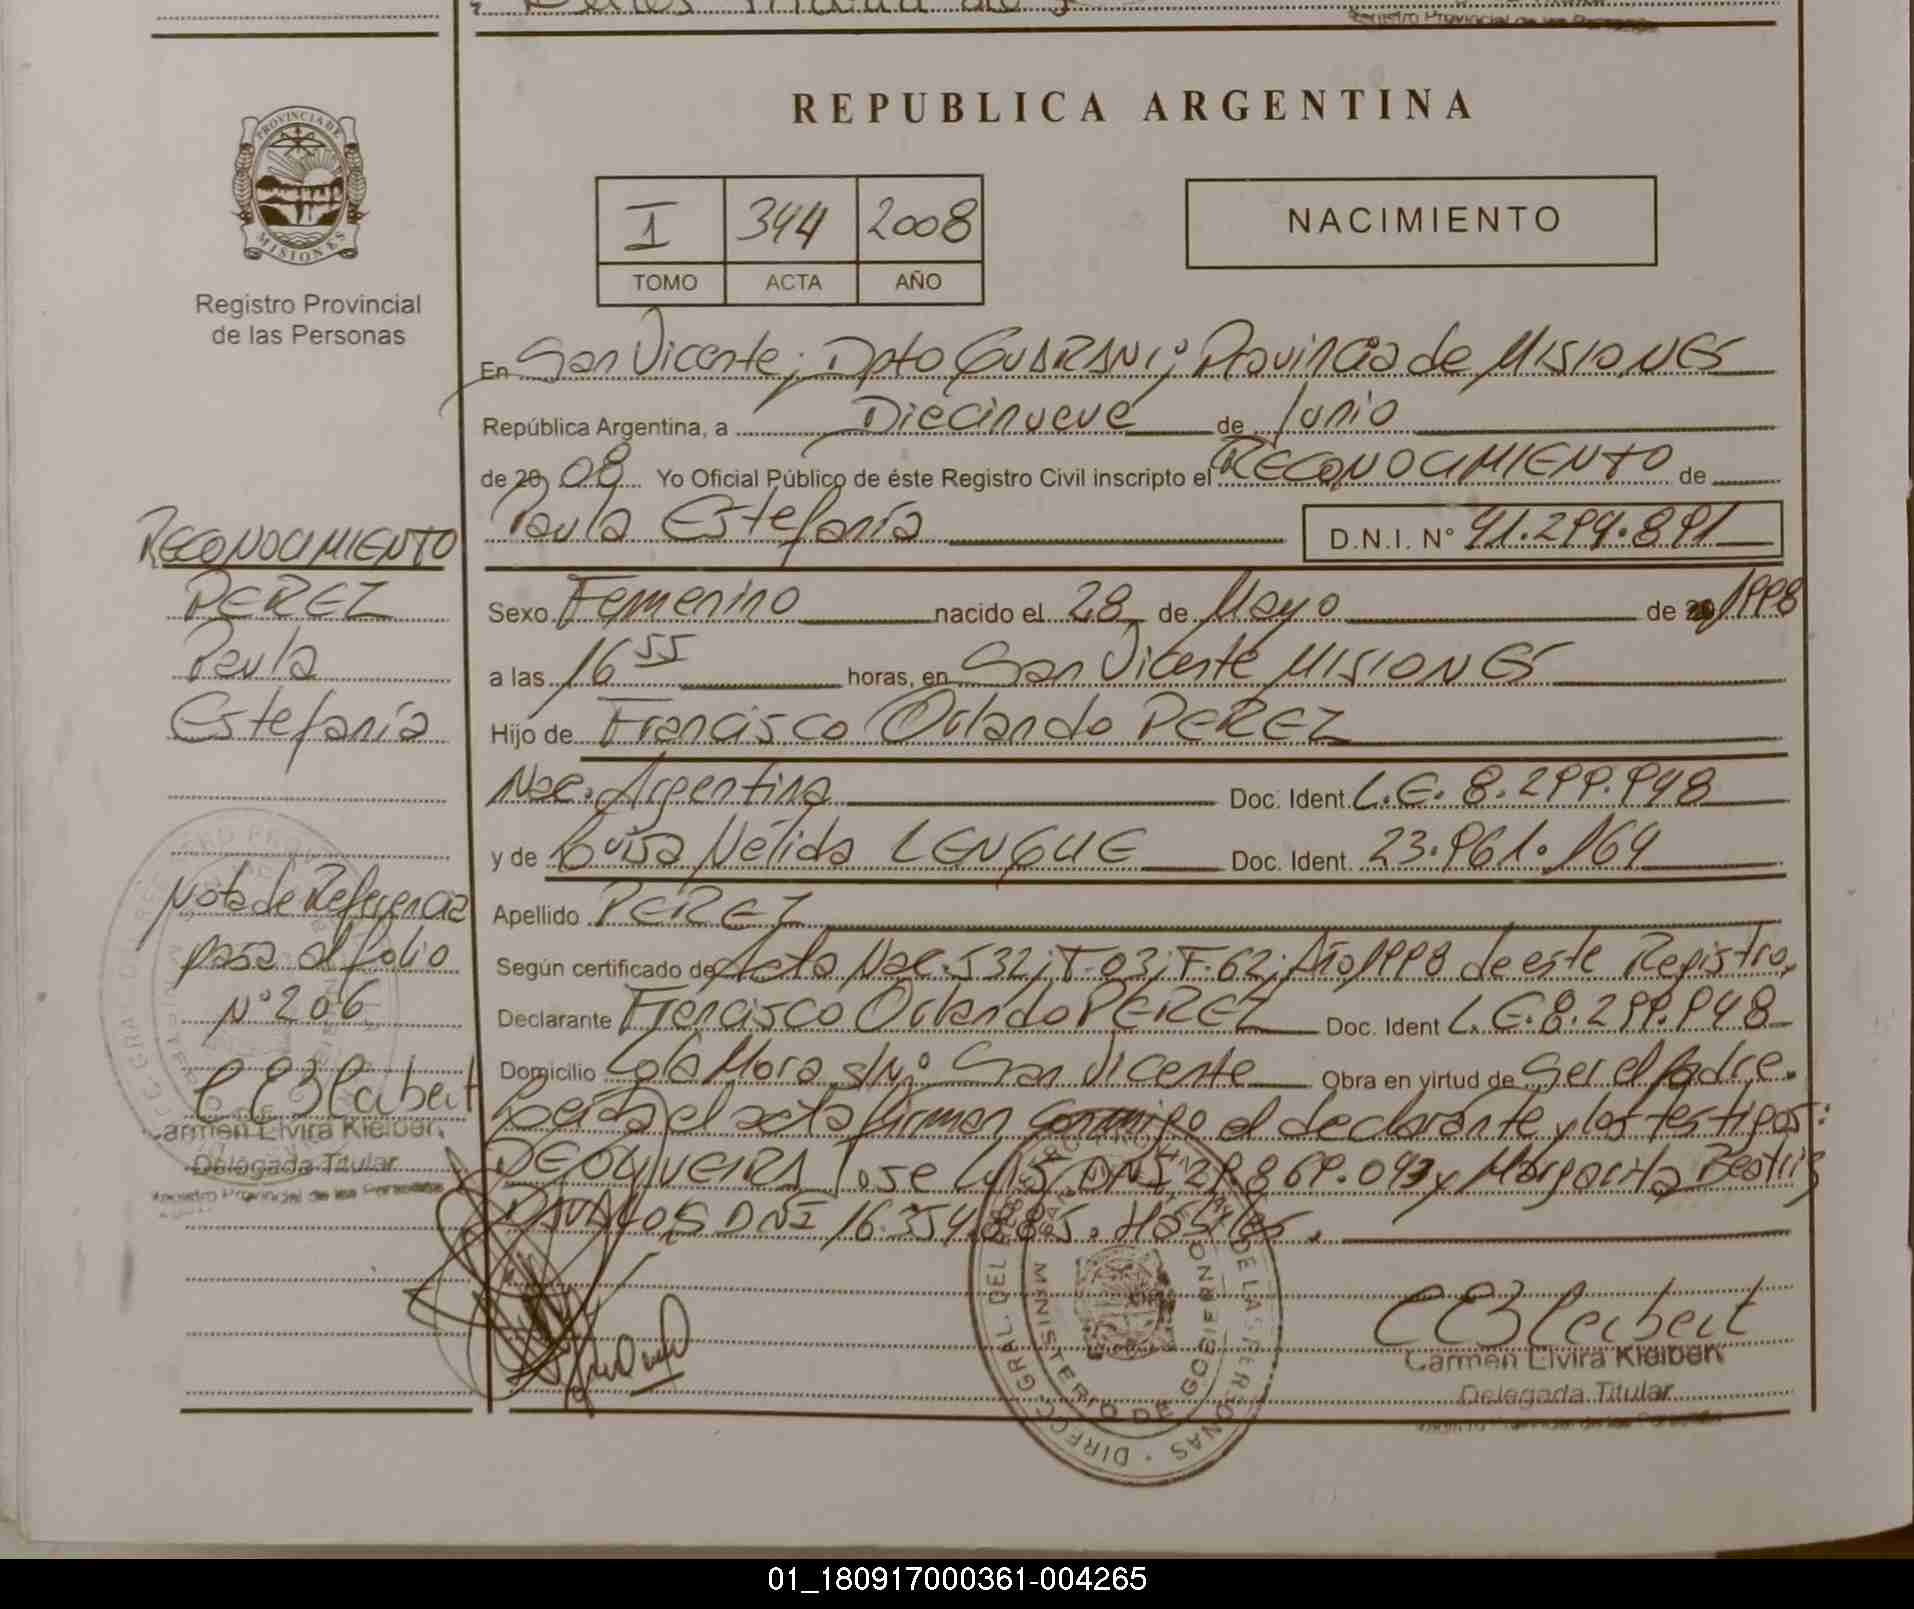 PROVINCIA DE
MISIONES
Registro Provincial
de las Personas
REPUBLICA ARGENTINA
I 344 2008
TOMO ACTA AÑO
NACIMIENTO
En San Vicente; Dpto GUARANI; Provincia de MISIONES
República Argentina, a Diecinueve de Junio
de 20 08 Yo Oficial Público de éste Registro Civil inscripto el RECONOCIMIENTO de
Paula Estefanía D.N.I. Nº 41.299.891
Sexo Femenino nacido el 28 de Mayo de 1998
a las 16 55 horas, en San Vicente MISIONES
Hijo de Francisco Orlando PEREZ
Nac. Argentina Doc. Ident. L.E. 8.299.948
y de Luisa Nélida LENGUE Doc. Ident. 23.961.164
Apellido PEREZ
Según certificado de Acta Nac. 532; T-03; F-62; Año 1998 de este Registro.
Declarante Francisco Orlando PEREZ Doc. Ident L.E. 8.299.948
Domicilio Lola Mora s/Nº San Vicente Obra en virtud de Ser el padre.
el acta firman conmigo el declarante y los testigos:
DEOLIVEIRA Jose Luis DNI 29.869.093 y Margarita Beatriz
DAVALOS DNI 16.354.885.
RECONOCIMIENTO
PEREZ
Paula
Estefanía
Nota de Referencia
pasa al folio
Nº 206
Carmen Elvira Kleiben
Delegada Titular
Registro Provincial de las Personas
Carmen Elvira Kleiben
Delegada Titular
DIRECC. GRAL. DEL DE LAS PERSONAS
MINISTERIO DE GOBIERNO
01_180917000361-004265